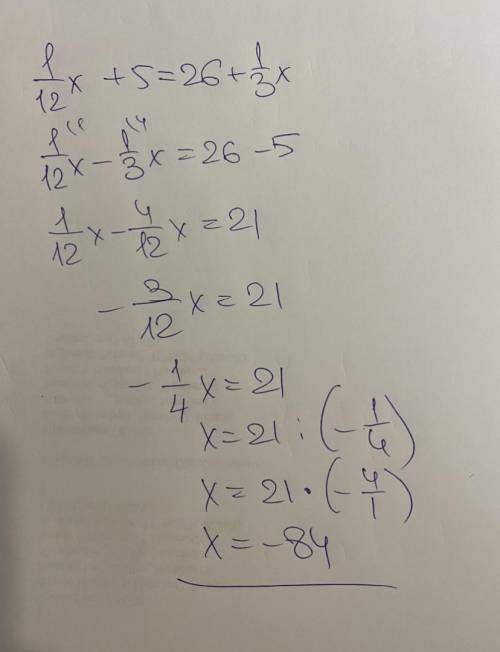 1/12 x + 5 = 26 + 1/3 x
1(1/12 x - 1(4/3 x = 26 - 5
1/12 x - 4/12 x = 21
- 3/12 x = 21
- 1/4 x = 21
x = 21 : (- 1/4)
x = 21 · (- 4/1)
x = -84